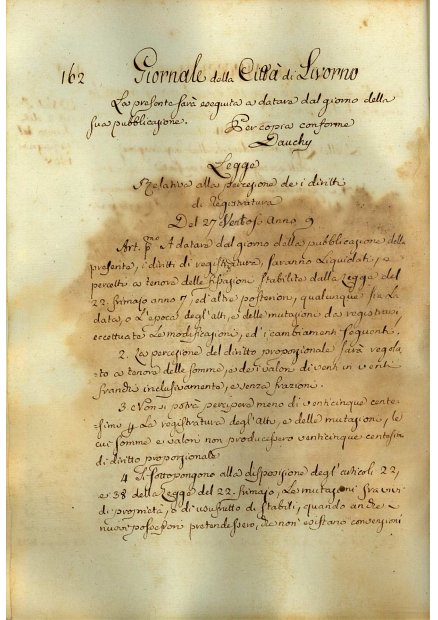 162 Giornale della Città di Livorno
La presente sarà eseguita a datare dal giorno della
sua pubblicazione. Per copia conforme
Dauchy
Legge
Relativa alla percezione de i diritti
di Registratura
Del 27 Ventos. Anno 9
Art. pmo A datare dal giorno della pubblicazione della
presente, i diritti di registratura, saranno Liquidati, e
percetti a tenore delle fissazioni stabilite dalla Legge del
22. frimajo anno 7, ed altre posteriori, qualunque sia La
data, o L'epoca degl'atti, e delle mutazioni da registrarsi,
eccettuate Le modificazioni, ed i cambiamenti seguenti.
2. La percezione del diritto proporzionale sarà regola
to a tenore delle somme, e dei valori di venti in venti
franchi inclusivamente, e senza frazioni.
3 Non si potrà percipere meno di venticinque cente
simi La registratura degl'Atti, e delle mutazioni, le
cui somme e valori non producessero venticinque centesimi
di diritto proporzionale
4 Si sottopongono alla disposizione degl'articoli 22,
e 38 della Legge del 22. frimajo, Le mutazioni fra vivi
di proprietà, o di usufrutto di stabili, quando anche i
nuovi possessori pretendessero, che non esistano convenzioni